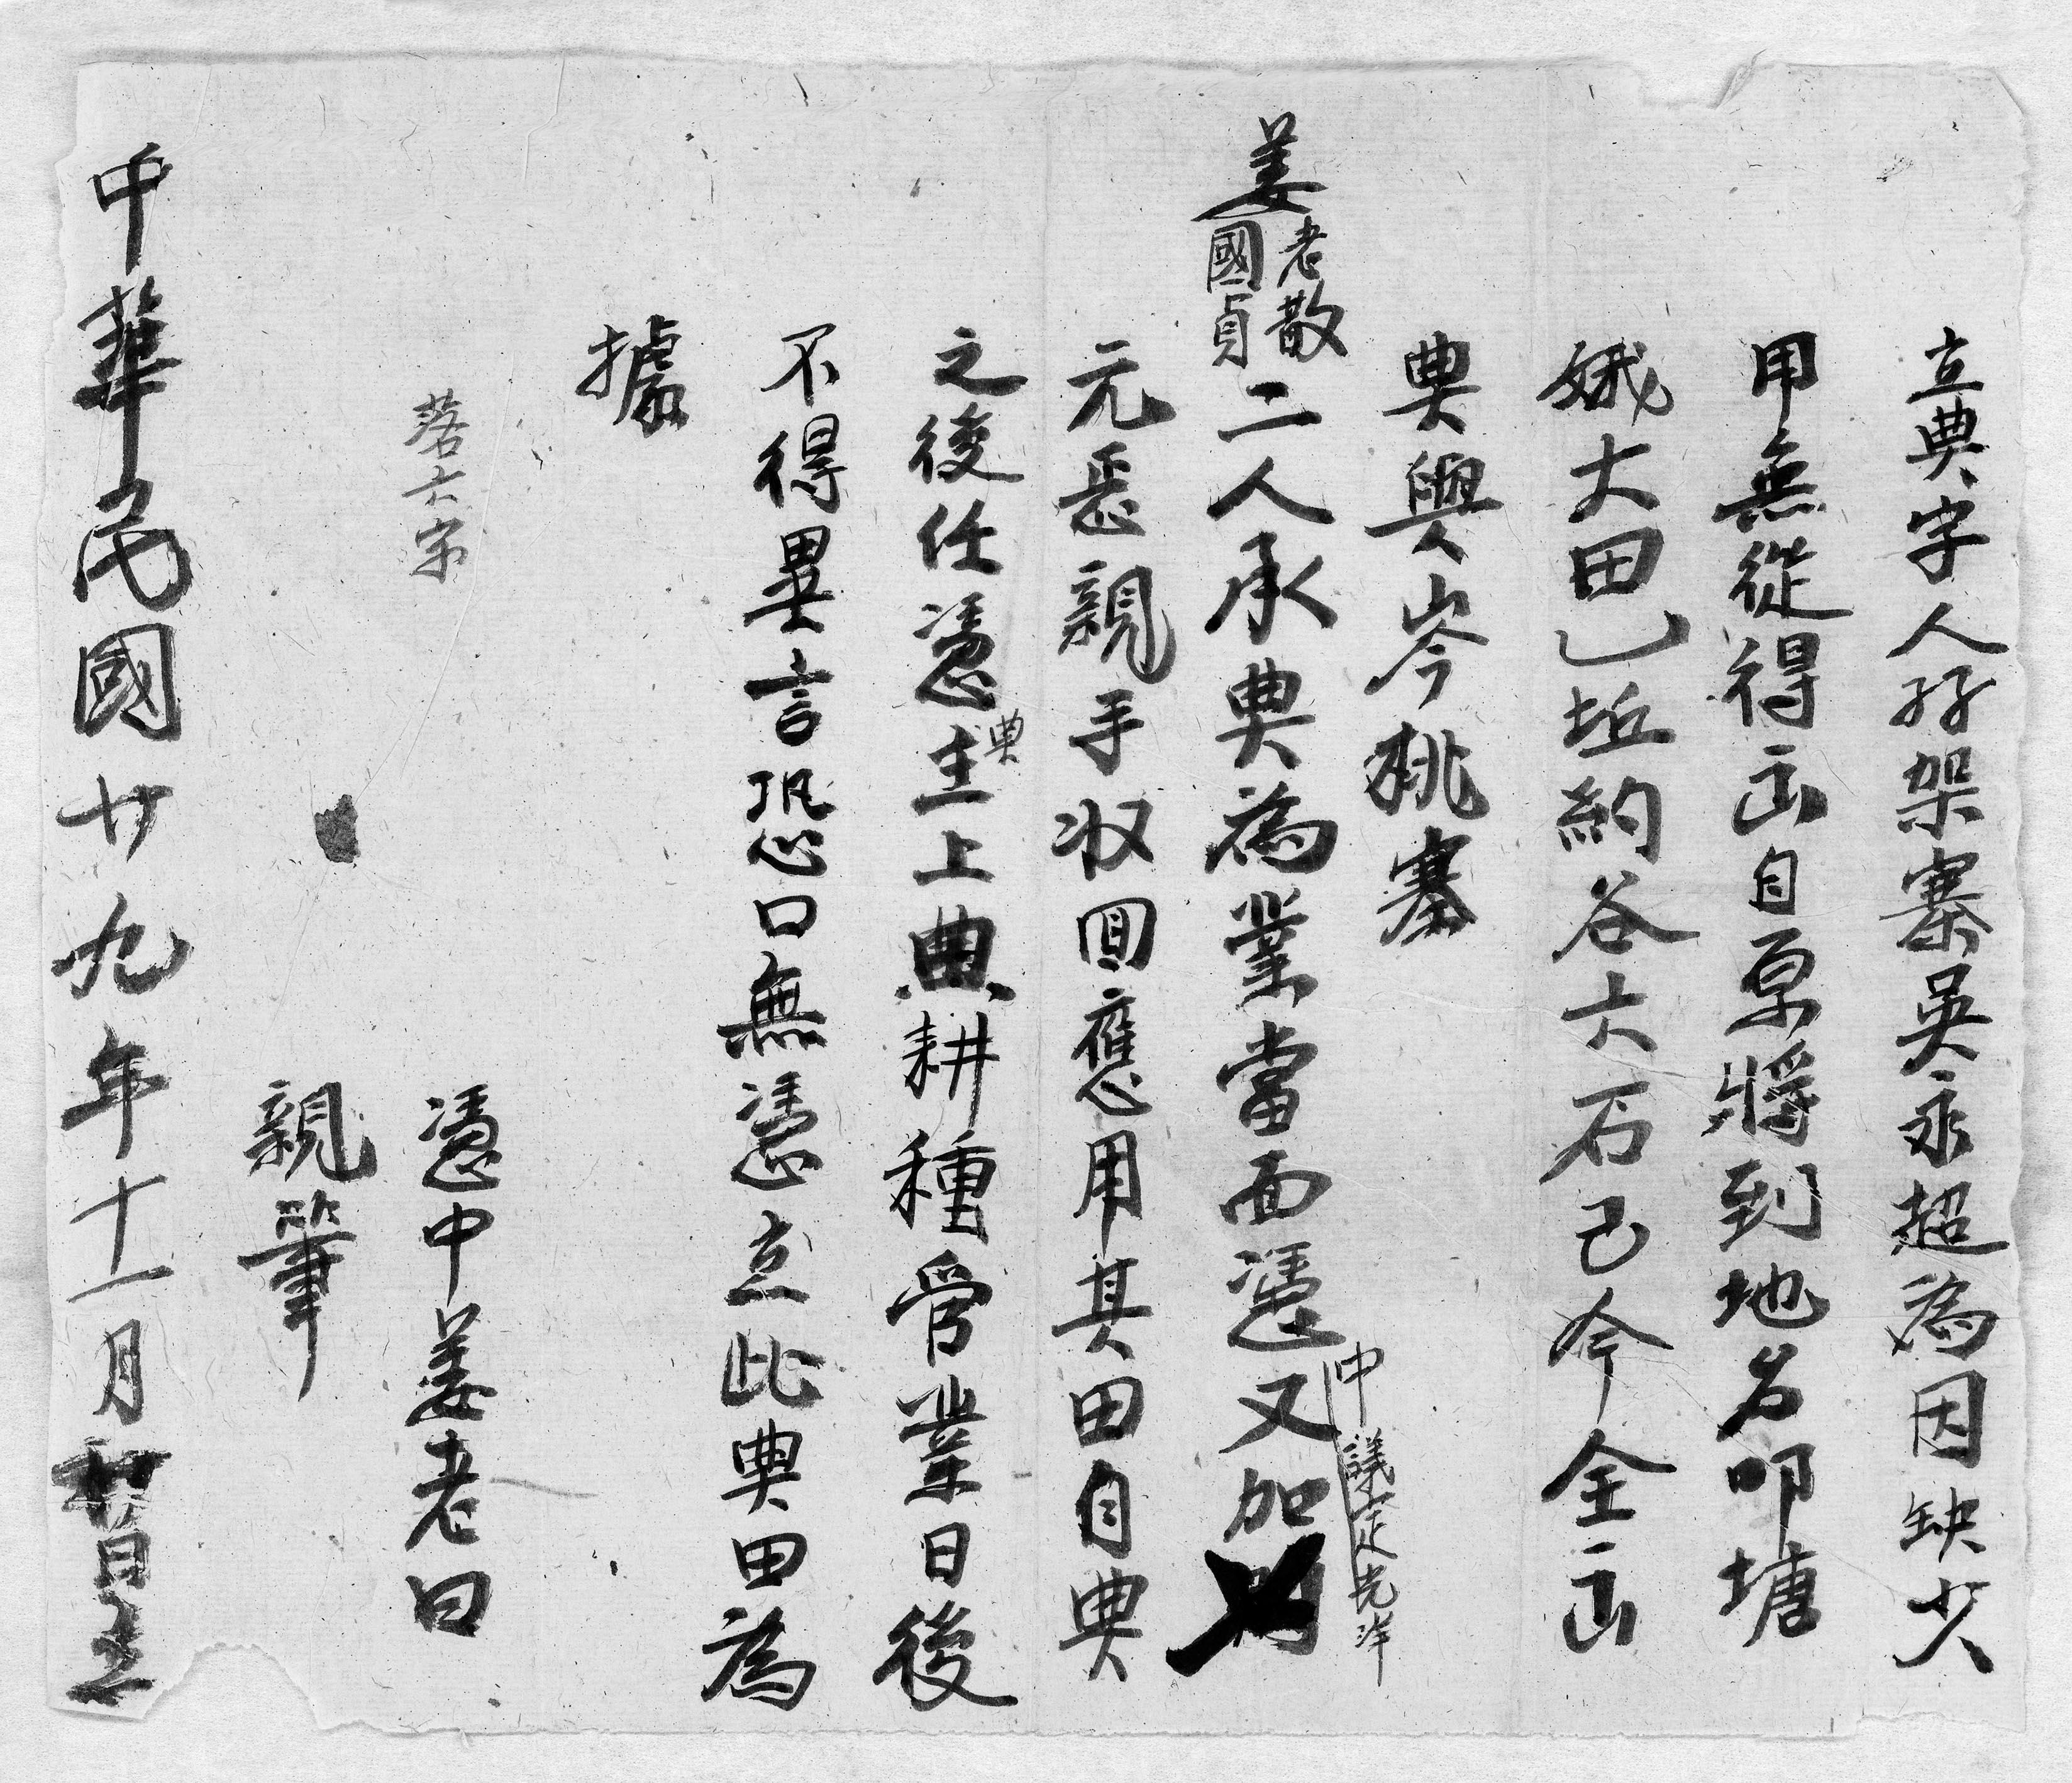 立典字人孖架寨吳永超為因缺少
用無從得出自原將到地名叩塘
娥大田乚坵約谷六石己今全出
典與岑桃寨
姜老散國貞二人承典為業當面憑中議定光洋又加
元悉親手收回應用其田自典
之後任憑典主上典耕種管業日後
不得異言恐口無憑立此典田為
據
落六字
憑中姜老曰
親筆
中華民國廿九年十一月初日立